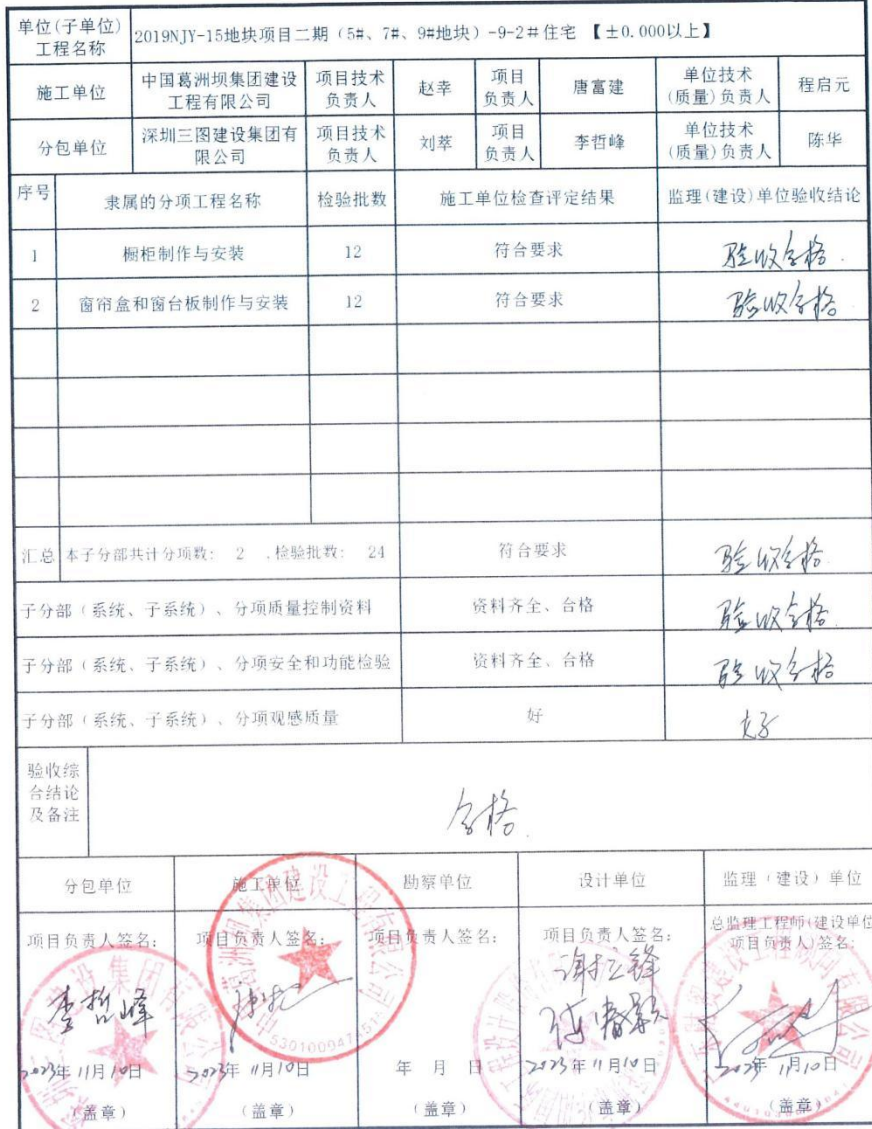 单位(子单位)
工程名称
2019NJY-15地块项目二期（5#、7#、9#地块）-9-2#住宅 【±0.000以上】
施工单位
中国葛洲坝集团建设
工程有限公司
项目技术
负责人
赵幸
项目
负责人
唐富建
单位技术
(质量)负责人
程启元
分包单位
深圳三图建设集团有
限公司
项目技术
负责人
刘萃
项目
负责人
李哲峰
单位技术
(质量)负责人
陈华
序号 隶属的分项工程名称 检验批数 施工单位检查评定结果 监理(建设)单位验收结论
1 橱柜制作与安装 12 符合要求 验收合格.
2 窗帘盒和窗台板制作与安装 12 符合要求 验收合格
汇总 本子分部共计分项数: 2 .检验批数: 24 符合要求 验收合格
子分部（系统、子系统）、分项质量控制资料 资料齐全、合格 验收合格
子分部（系统、子系统）、分项安全和功能检验 资料齐全、合格 验收合格
子分部（系统、子系统）、分项观感质量 好 好
验收综
合结论
及备注
合格.
分包单位 施工单位 勘察单位 设计单位 监理（建设）单位
项目负责人签名:
李哲峰
2023年11月10日
（盖章）
项目负责人签名:
2023年11月10日
（盖章）
项目负责人签名:
年 月 日
（盖章）
项目负责人签名:
2023年11月10日
（盖章）
总监理工程师(建设单位
项目负责人)签名:
2023年11月10日
（盖章）